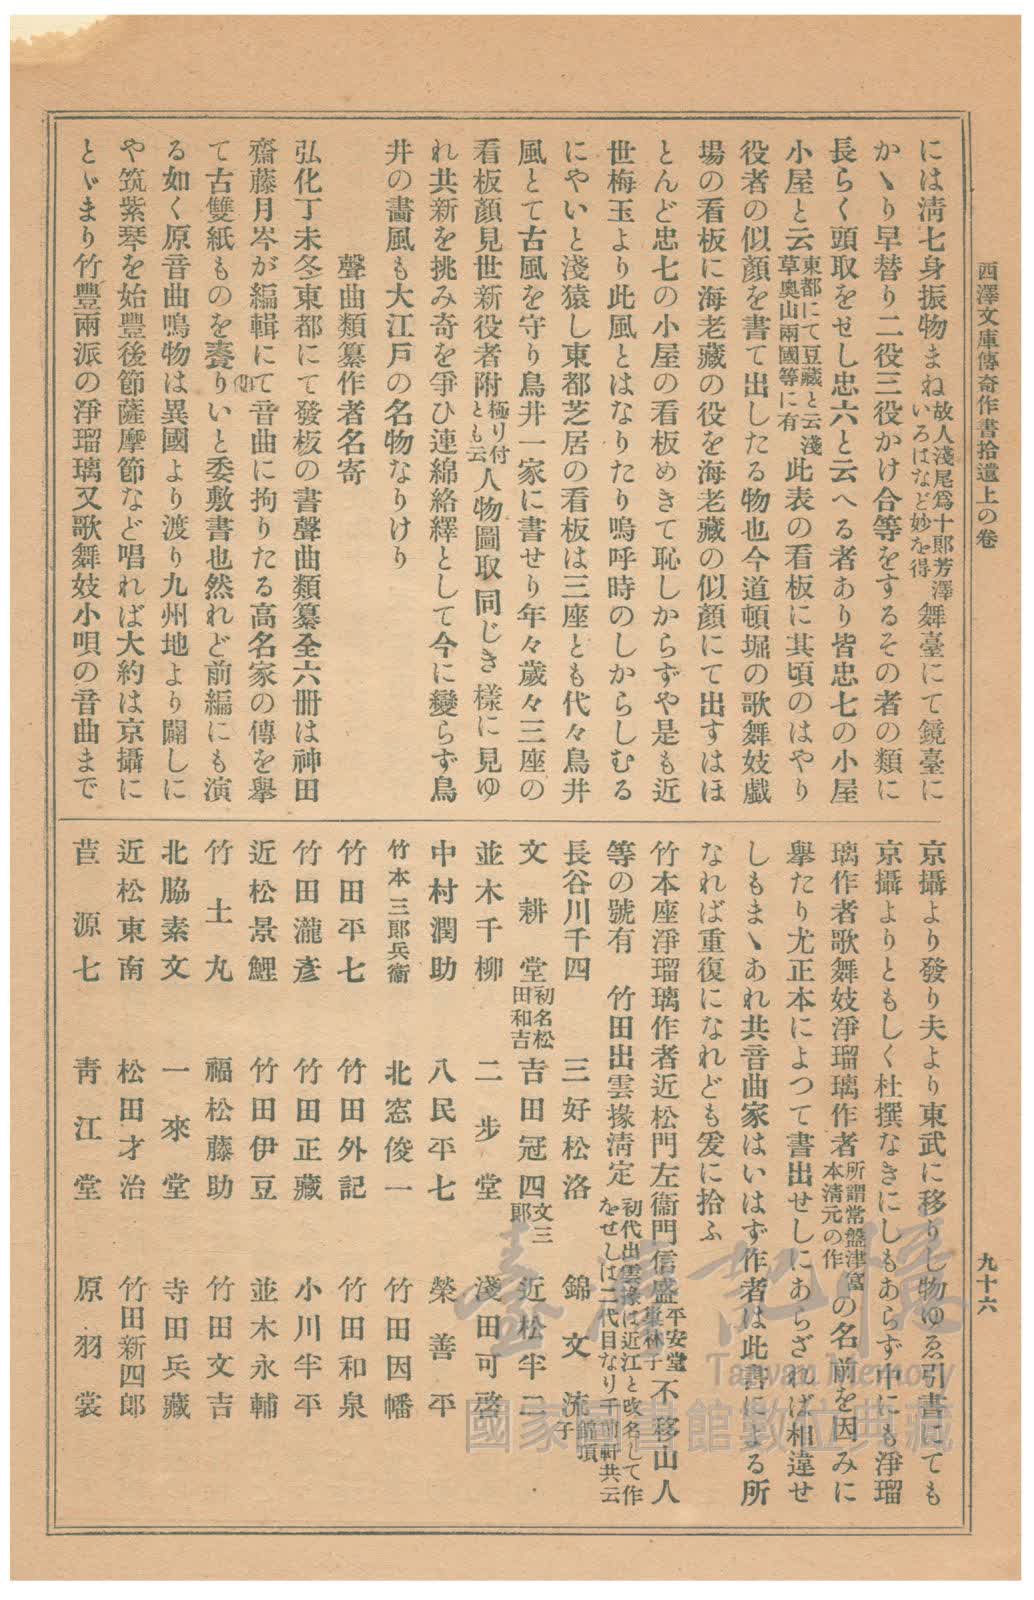 西澤文庫傳奇作書拾遺上の卷
九十六
には淸七身振物まね故人淺尾爲十郞芳澤いろはなど妙を得舞臺にて鏡臺に
かゝり早替り二役三役かけ合等をするその者の類に
長らく頭取をせし忠六と云へる者あり皆忠七の小屋
小屋と云東都にて豆藏と云淺草奥山兩國等に有此表の看板に其頃のはやり
役者の似顏を書て出したる物也今道頓堀の歌舞妓戲
場の看板に海老藏の役を海老藏の似顏にて出すはほ
とんど忠七の小屋の看板めきて恥しからずや是も近
世梅玉より此風とはなりたり嗚呼時のしからしむる
にやいと淺猿し東都芝居の看板は三座とも代々鳥井
風とて古風を守り鳥井一家に書せり年々歲々三座の
看板顏見世新役者附極り付とも云人物圖取同じき樣に見ゆ
れ共新を挑み奇を爭ひ連綿絡繹として今に變らず鳥
井の畵風も大江戸の名物なりけり
聲曲類纂作者名寄
弘化丁未冬東都にて發板の書聲曲類纂全六冊は神田
齋藤月岑が編輯にて音曲に拘りたる高名家の傳を擧
て古雙紙ものを賣りいと委敷書也然れど前編にも演
る如く原音曲鳴物は異國より渡り九州地より闢しに
や筑紫琴を始豐後節薩摩節など唱れば大約は京攝に
とゞまり竹豐兩派の淨瑠璃又歌舞妓小唄の音曲まで
京攝より發り夫より東武に移りし物ゆゑ引書にても
京攝よりともしく杜撰なきにしもあらず中にも淨瑠
璃作者歌舞妓淨瑠璃作者所謂常盤津富本淸元の作の名前を因みに
擧たり尤正本によつて書出せしにあらざれば相違せ
しもまゝあれ共音曲家はいはず作者は此書による所
なれば重復になれども爰に拾ふ
竹本座淨瑠璃作者近松門左衞門信盛平安堂巢林子不移山人
等の號有　竹田出雲掾淸定初代出雲掾は近江と改名して作をせしは二代目なり千前軒共云
長谷川千四　三好松洛　錦文流錦頂子
文耕堂初名松田和吉　吉田冠四文三郞　近松半二
並木千柳　二步堂　淺田可啓
中村潤助　八民平七　榮善平
竹本三郞兵衞　北窓俊一　竹田因幡
竹田平七　竹田外記　竹田和泉
竹田瀧彥　竹田正藏　小川半平
近松景鯉　竹田伊豆　並木永輔
竹土丸　福松藤助　竹田文吉
北脇素文　一來堂　寺田兵藏
近松東南　松田才治　竹田新四郞
苣源七　靑江堂　原羽裳
臺灣記憶
Taiwan Memory
國家圖書館數位典藏